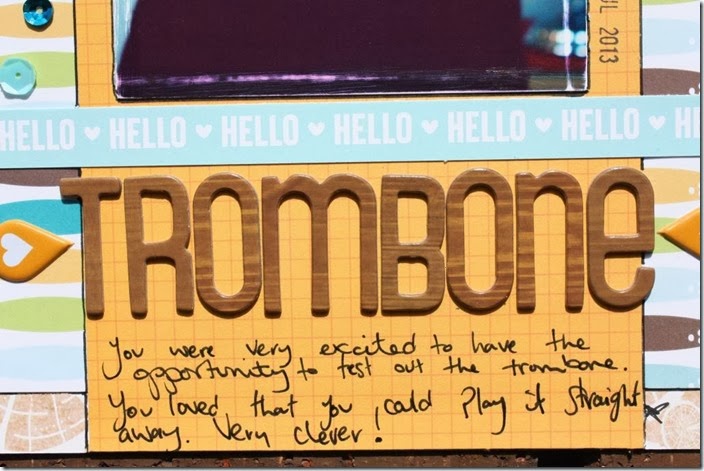 UL 2013
HELLO HELLO HELLO HELLO HELLO HELLO HE
TROMBONE
You were very excited to have the
opportunity to test out the trombone.
You loved that you could play it straight
away. Very clever!